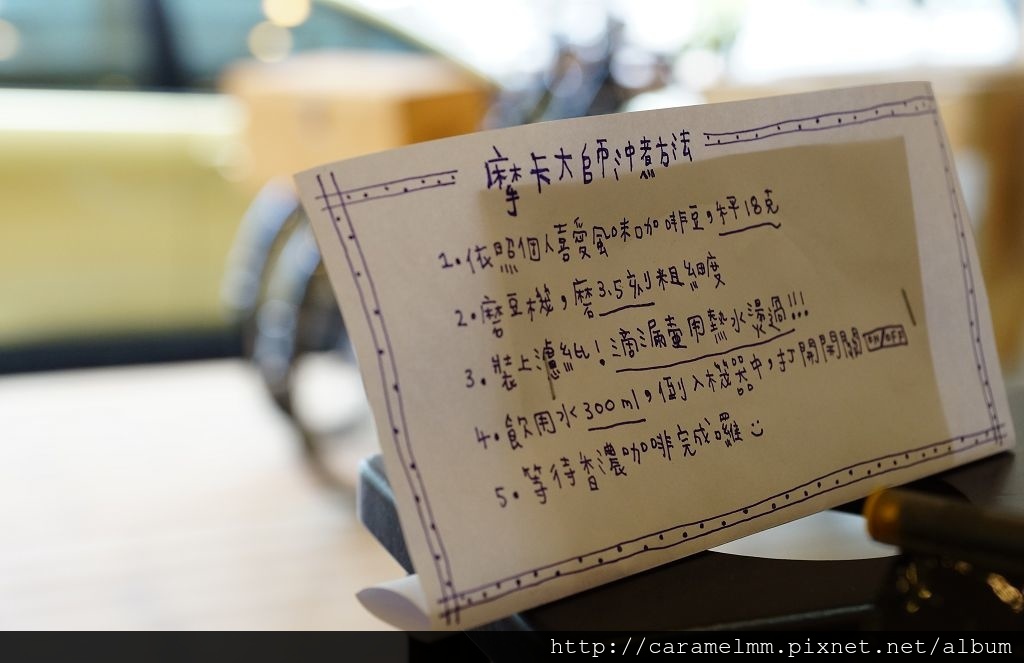 摩卡大師沖煮方法
1.依照個人喜愛風味咖啡豆,秤18克
2.磨豆機,磨3.5刻粗細度
3.裝上濾紙!滴漏壺用熱水燙過!!!
4.飲用水300ml,倒入機器中,打開開關ON/OFF
5.等待香濃咖啡完成囉
http://caramelmm.pixnet.net/album